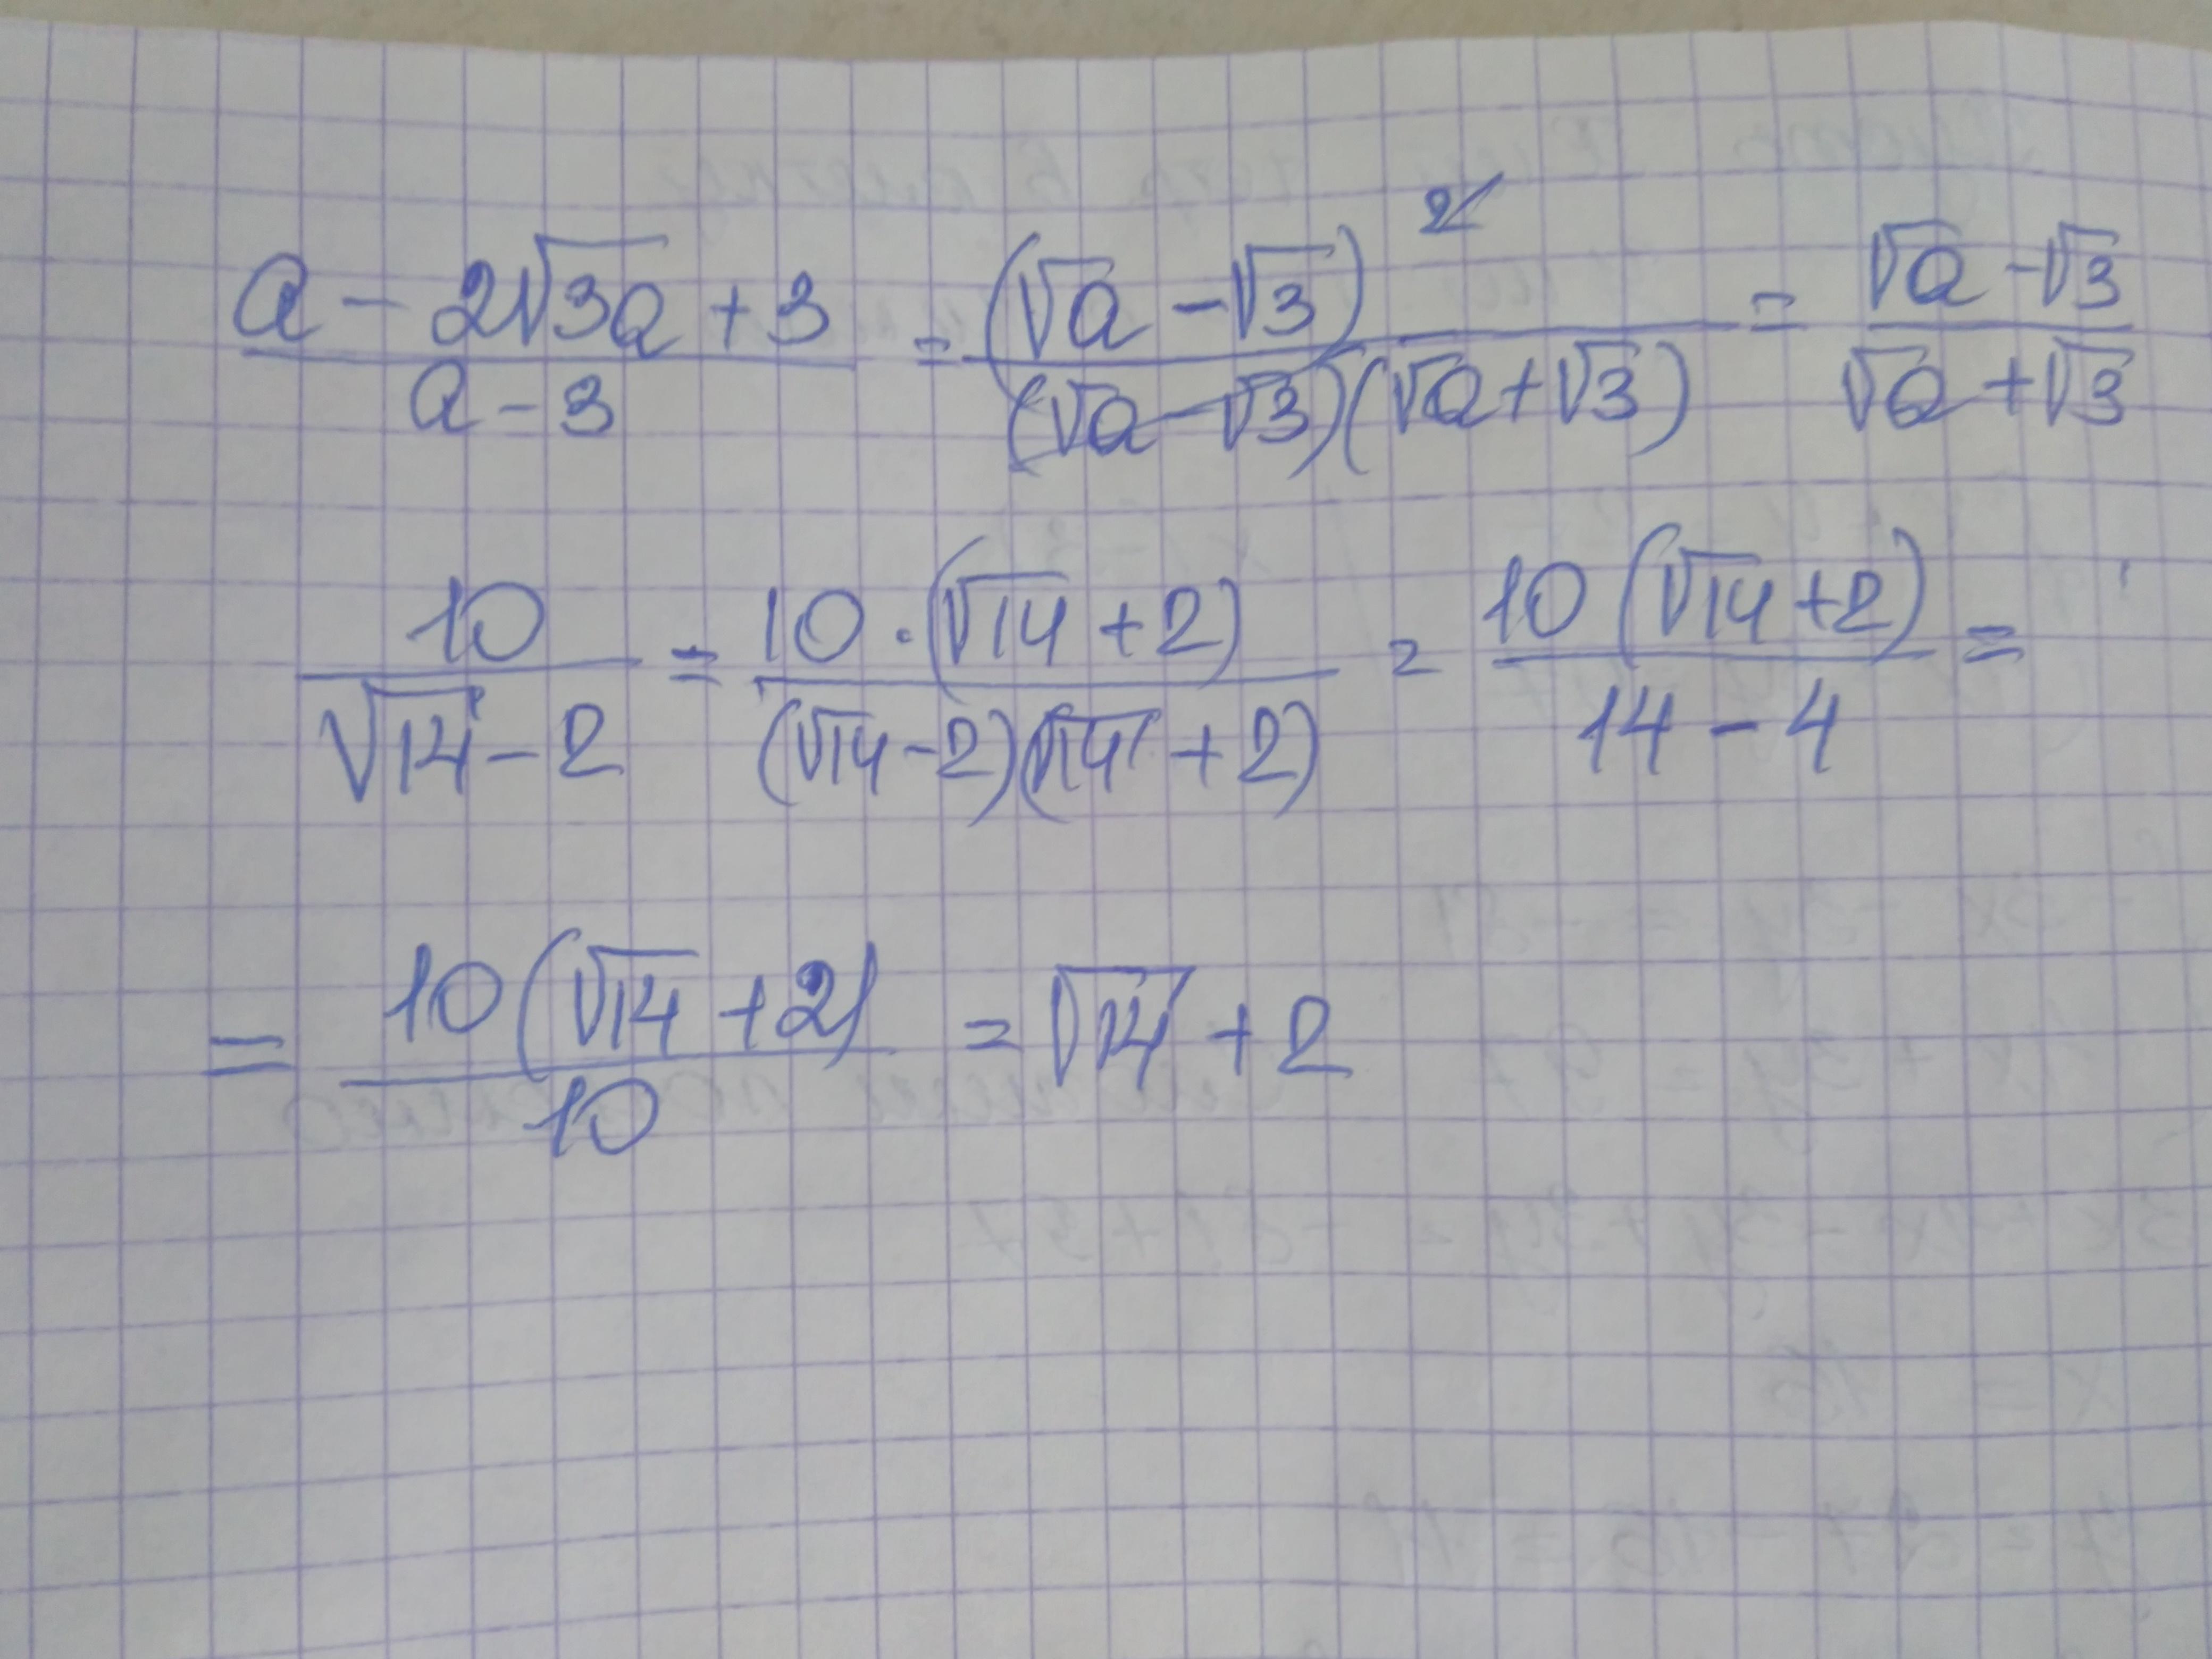 a - 2√3a + 3 / a - 3 = (√a - √3)² / (√a - √3)(√a + √3) = √a - √3 / √a + √3
10 / √14 - 2 = 10 · (√14 + 2) / (√14 - 2)(√14 + 2) = 10 (√14 + 2) / 14 - 4 =
= 10 (√14 + 2) / 10 = √14 + 2